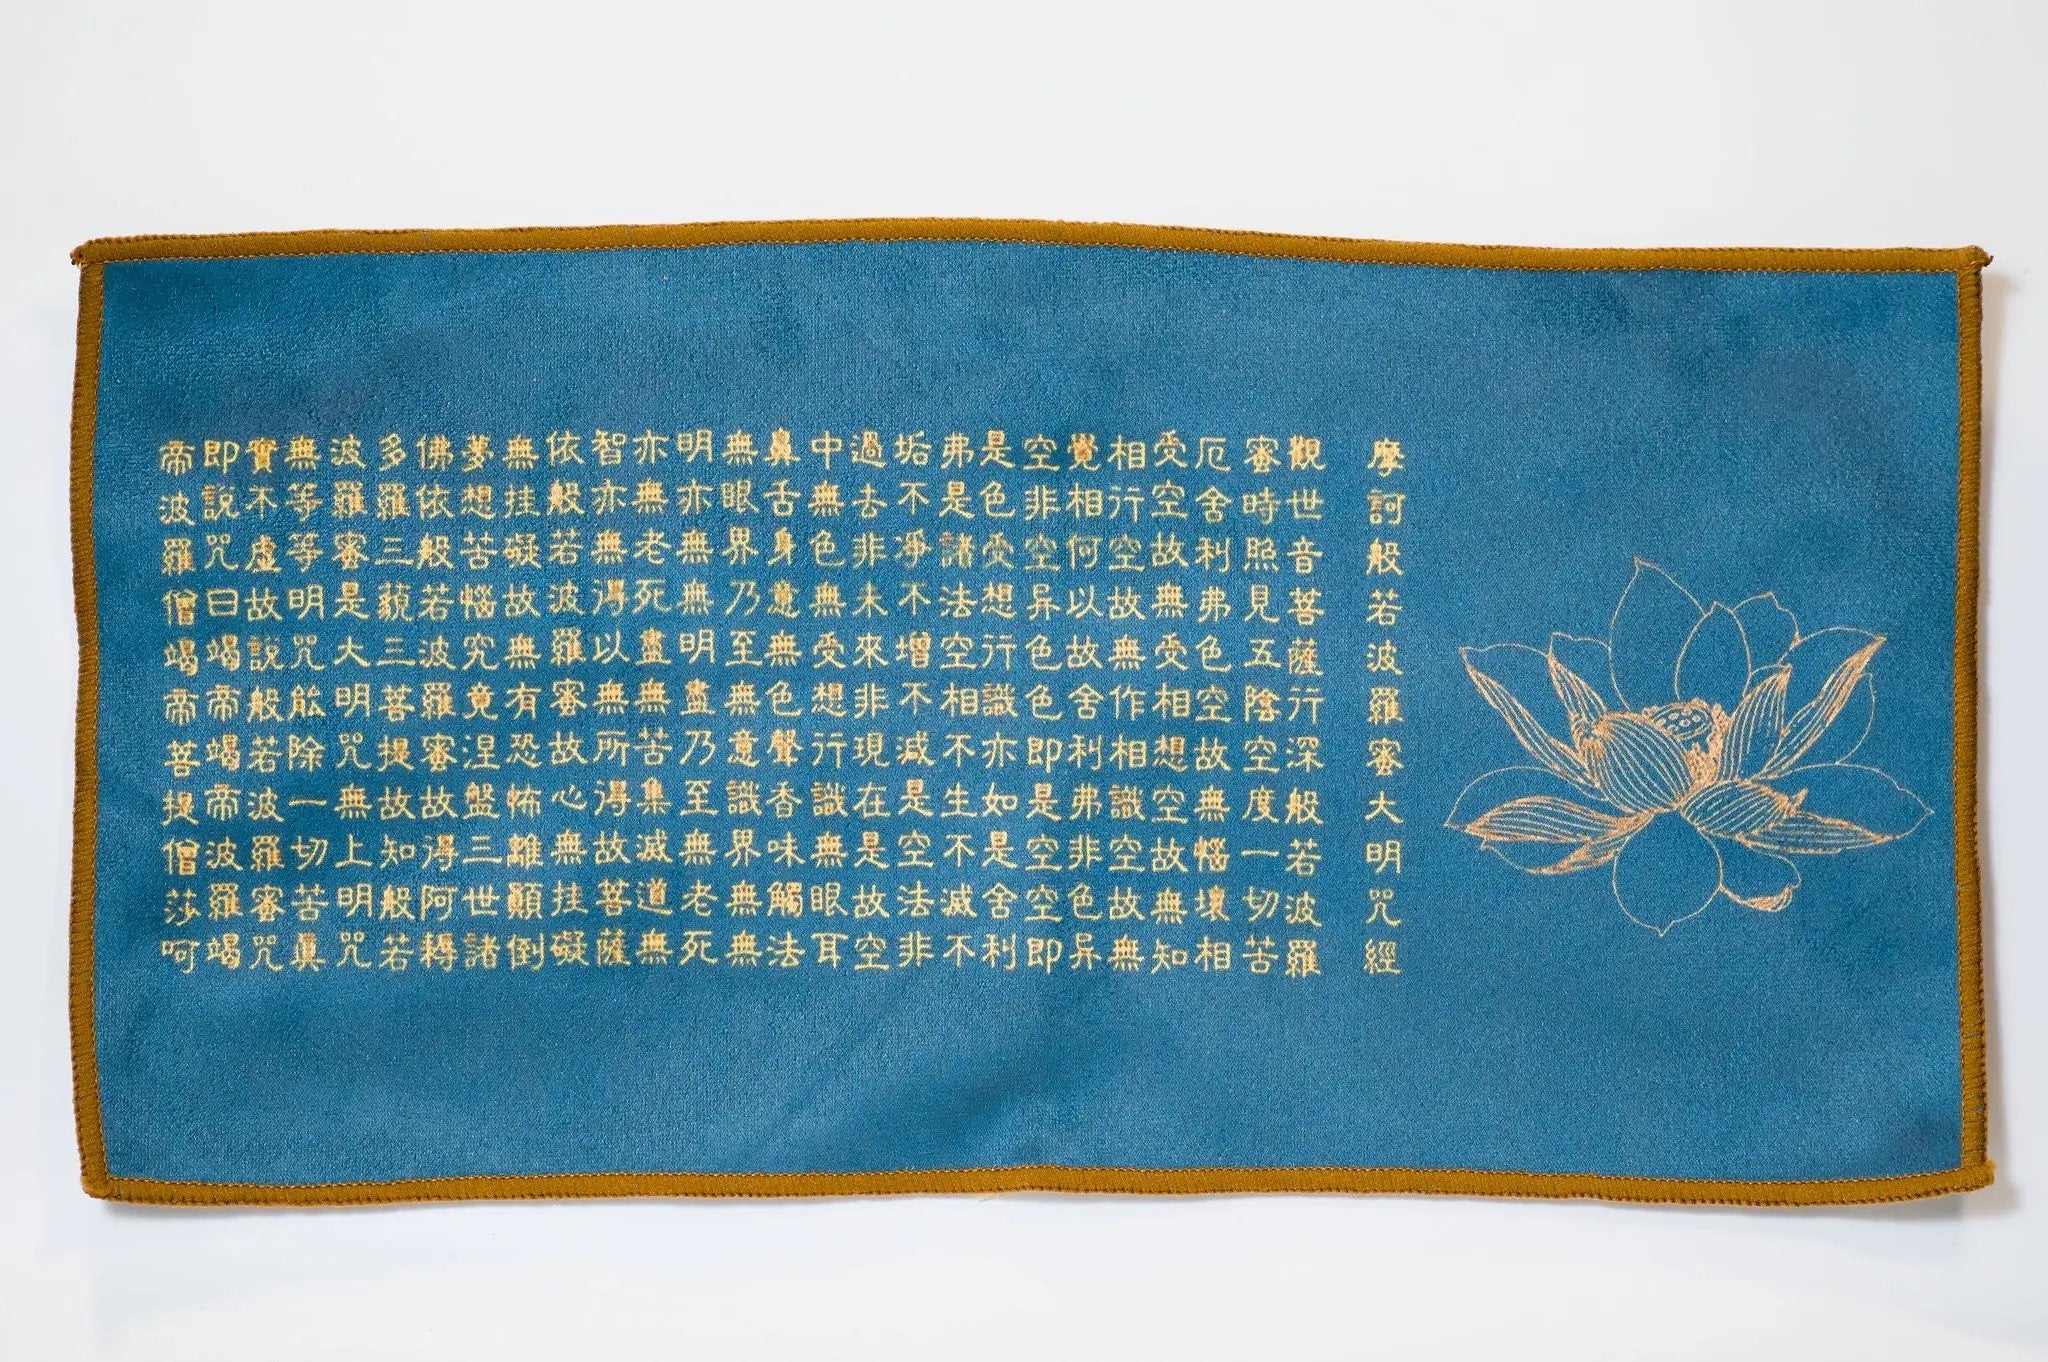 摩訶般若波羅蜜大明咒經
觀世音菩薩行深般若波羅
蜜時照見五陰空度一切苦
厄舍利弗色空故無惱壞相
受空故無受相想空故無知
相行空故無作相識空故無
覺相何以故舍利弗非色异
空非空异色色即是空空即
是色受想行識亦如是舍利
弗是諸法空相不生不滅不
垢不淨不增不減是空法非
過去非未來非現在是故空
中無色無受想行識無眼耳
鼻舌身意無色聲香味觸法
無眼界乃至無意識界無無
明亦無無明盡乃至無老死
亦無老死盡無苦集滅道無
智亦無得以無所得故菩薩
依般若波羅蜜故心無挂礙
無挂礙故無有恐怖離顛倒
夢想苦惱究竟涅盤三世諸
佛依般若波羅蜜故得阿耨
多羅三藐三菩提故知般若
波羅蜜是大明咒無上明咒
無等等明咒能除一切苦眞
實不虛故說般若波羅蜜咒
即說咒曰竭帝竭帝波羅竭
帝波羅僧竭帝菩提僧莎呵